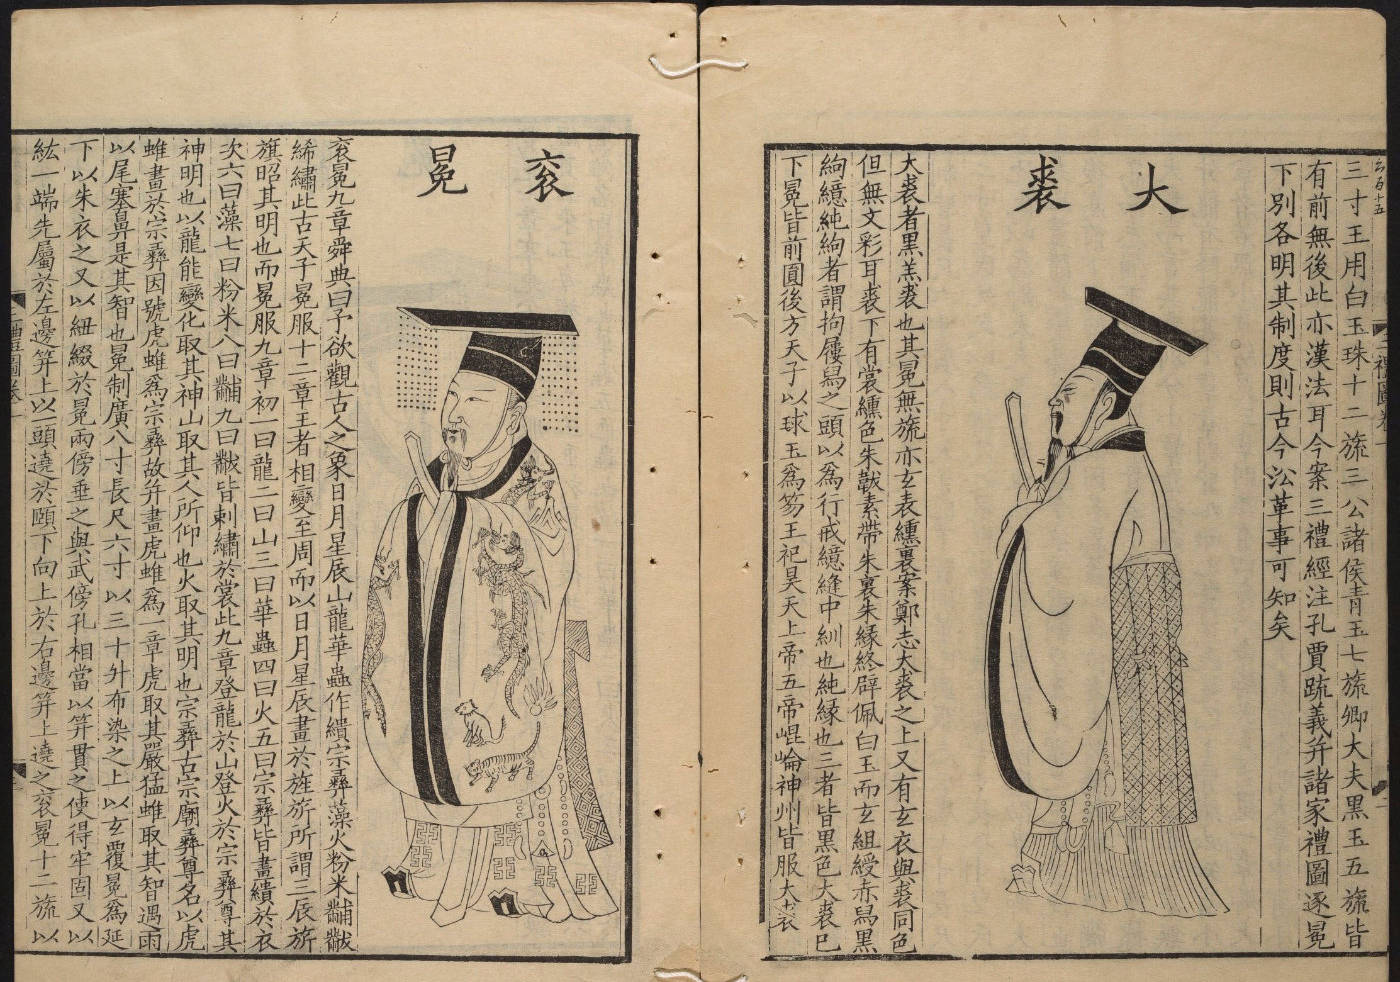 三寸玉用白玉珠十二旒三公諸侯青玉七旒卿大夫黑玉五旒皆
有前無後此亦漢法耳今案三禮經注孔賈疏義并諸家禮圖逐冕
下別各明其制度則古今沿革事可知矣
大裘
大裘者黑羔裘也其冕無旒亦玄表纁裏案鄭志大裘之上又有玄衣與裘同色
但無文彩耳裘下有裳纁色朱韍素帶朱裏朱緣終辟佩白玉而玄組綬赤舄黑
絇繶純絇者謂拘屨舄之頭以爲行戒繶縫中紃也純緣也三者皆黑色大裘已
下冕皆前圓後方天子以球玉爲笏王祀昊天上帝五帝崐崘神州皆服大裘
三禮圖卷一
二
袞冕
袞冕九章舜典曰予欲觀古人之象日月星辰山龍華蟲作繢宗彝藻火粉米黼黻
絺繡此古天子冕服十二章王者相變至周而以日月星辰畫於旌旂所謂三辰旂
旗昭其明也而冕服九章初一曰龍二曰山三曰華蟲四曰火五曰宗彝皆畫繢於衣
次六曰藻七曰粉米八曰黼九曰黻皆刺繡於裳此九章登龍於山登火於宗彝尊其
神明也以龍能變化取其神山取其人所仰也火取其明也宗彝古宗廟彝尊名以虎
蜼畫於宗彝因號虎蜼爲宗彝故并畫虎蜼爲一章虎取其嚴猛蜼取其智遇雨
以尾塞鼻是其智也冕制廣八寸長尺六寸以三十升布染之上以玄覆冕爲延
下以朱衣之又以紐綴於冕兩傍垂之與武傍孔相當以笄貫之使得牢固又以
紘一端先屬於左邊笄上以一頭遶於頤下向上於右邊笄上遶之袞冕十二旒以
三禮圖卷一